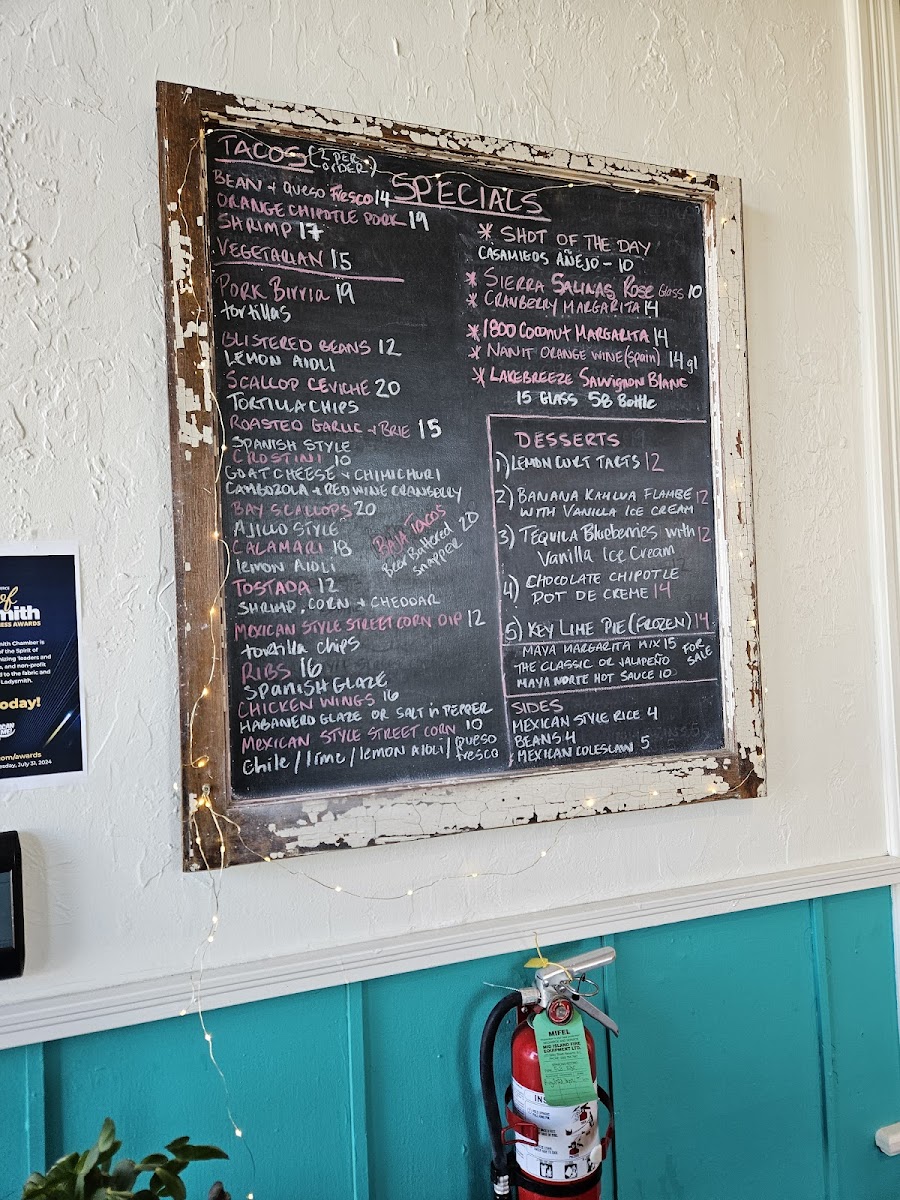 TACOS (2 PER ORDER)
BEAN + Queso Fresco 14
ORANGE CHIPOTLE PORK 19
SHRIMP 17
VEGETARIAN 15
PORK BIRRIA 19
tortillas
BLISTERED BEANS 12
LEMON AIOLI
SCALLOP CEVICHE 20
TORTILLA CHIPS
ROASTED GARLIC + BRIE 15
SPANISH STYLE
CROSTINI 10
GOAT CHEESE + CHIMICHURI
CAMBOZOLA + RED WINE CRANBERRY
BAY SCALLOPS 20
AJILLO STYLE
CALAMARI 18
lemon AIOLI
BAJA TACOS
Beer Battered 20
snapper
TOSTADA 12
SHRIMP, CORN + CHEDDAR
MEXICAN STYLE STREET CORN DIP 12
tortilla chips
RIBS 16
SPANISH GLAZE
CHICKEN WINGS 16
HABANERO GLAZE OR SALT n PEPPER
MEXICAN STYLE STREET CORN 10
Chile / lime / lemon AIOLI / queso fresco
SPECIALS
* SHOT OF THE DAY
CASAMIGOS AÑEJO - 10
* SIERRA SALINAS ROSE Glass 10
* CRANBERRY MARGARITA 14
* 1800 COCONUT MARGARITA 14
* NANIT ORANGE WINE (Spain) 14 gl
* LAKEBREEZE SAUVIGNON BLANC
15 GLASS 58 Bottle
DESSERTS
1) LEMON CURT TARTS 12
2) BANANA KAHLUA FLAMBE 12
WITH VANILLA ICE CREAM
3) TEQUILA Blueberries with 12
Vanilla Ice Cream
4) CHOCOLATE CHIPOTLE
POT DE CREME 14
5) KEY LIME PIE (FROZEN) 14
MAYA MARGARITA MIX 15
THE CLASSIC OR JALAPEÑO
MAYA NORTE HOT SAUCE 10
FOR SALE
SIDES
MEXICAN STYLE RICE 4
BEANS 4
MEXICAN COLESLAW 5
of
mith
ESS AWARDS
mith Chamber is
of the Spirit of
nizing leaders and
, and non-profit
d to the fabric and
Ladysmith.
oday!
com/awards
esday, July 31, 2024
MIFEL
MID ISLAND FIRE
EQUIPMENT LTD.
INS